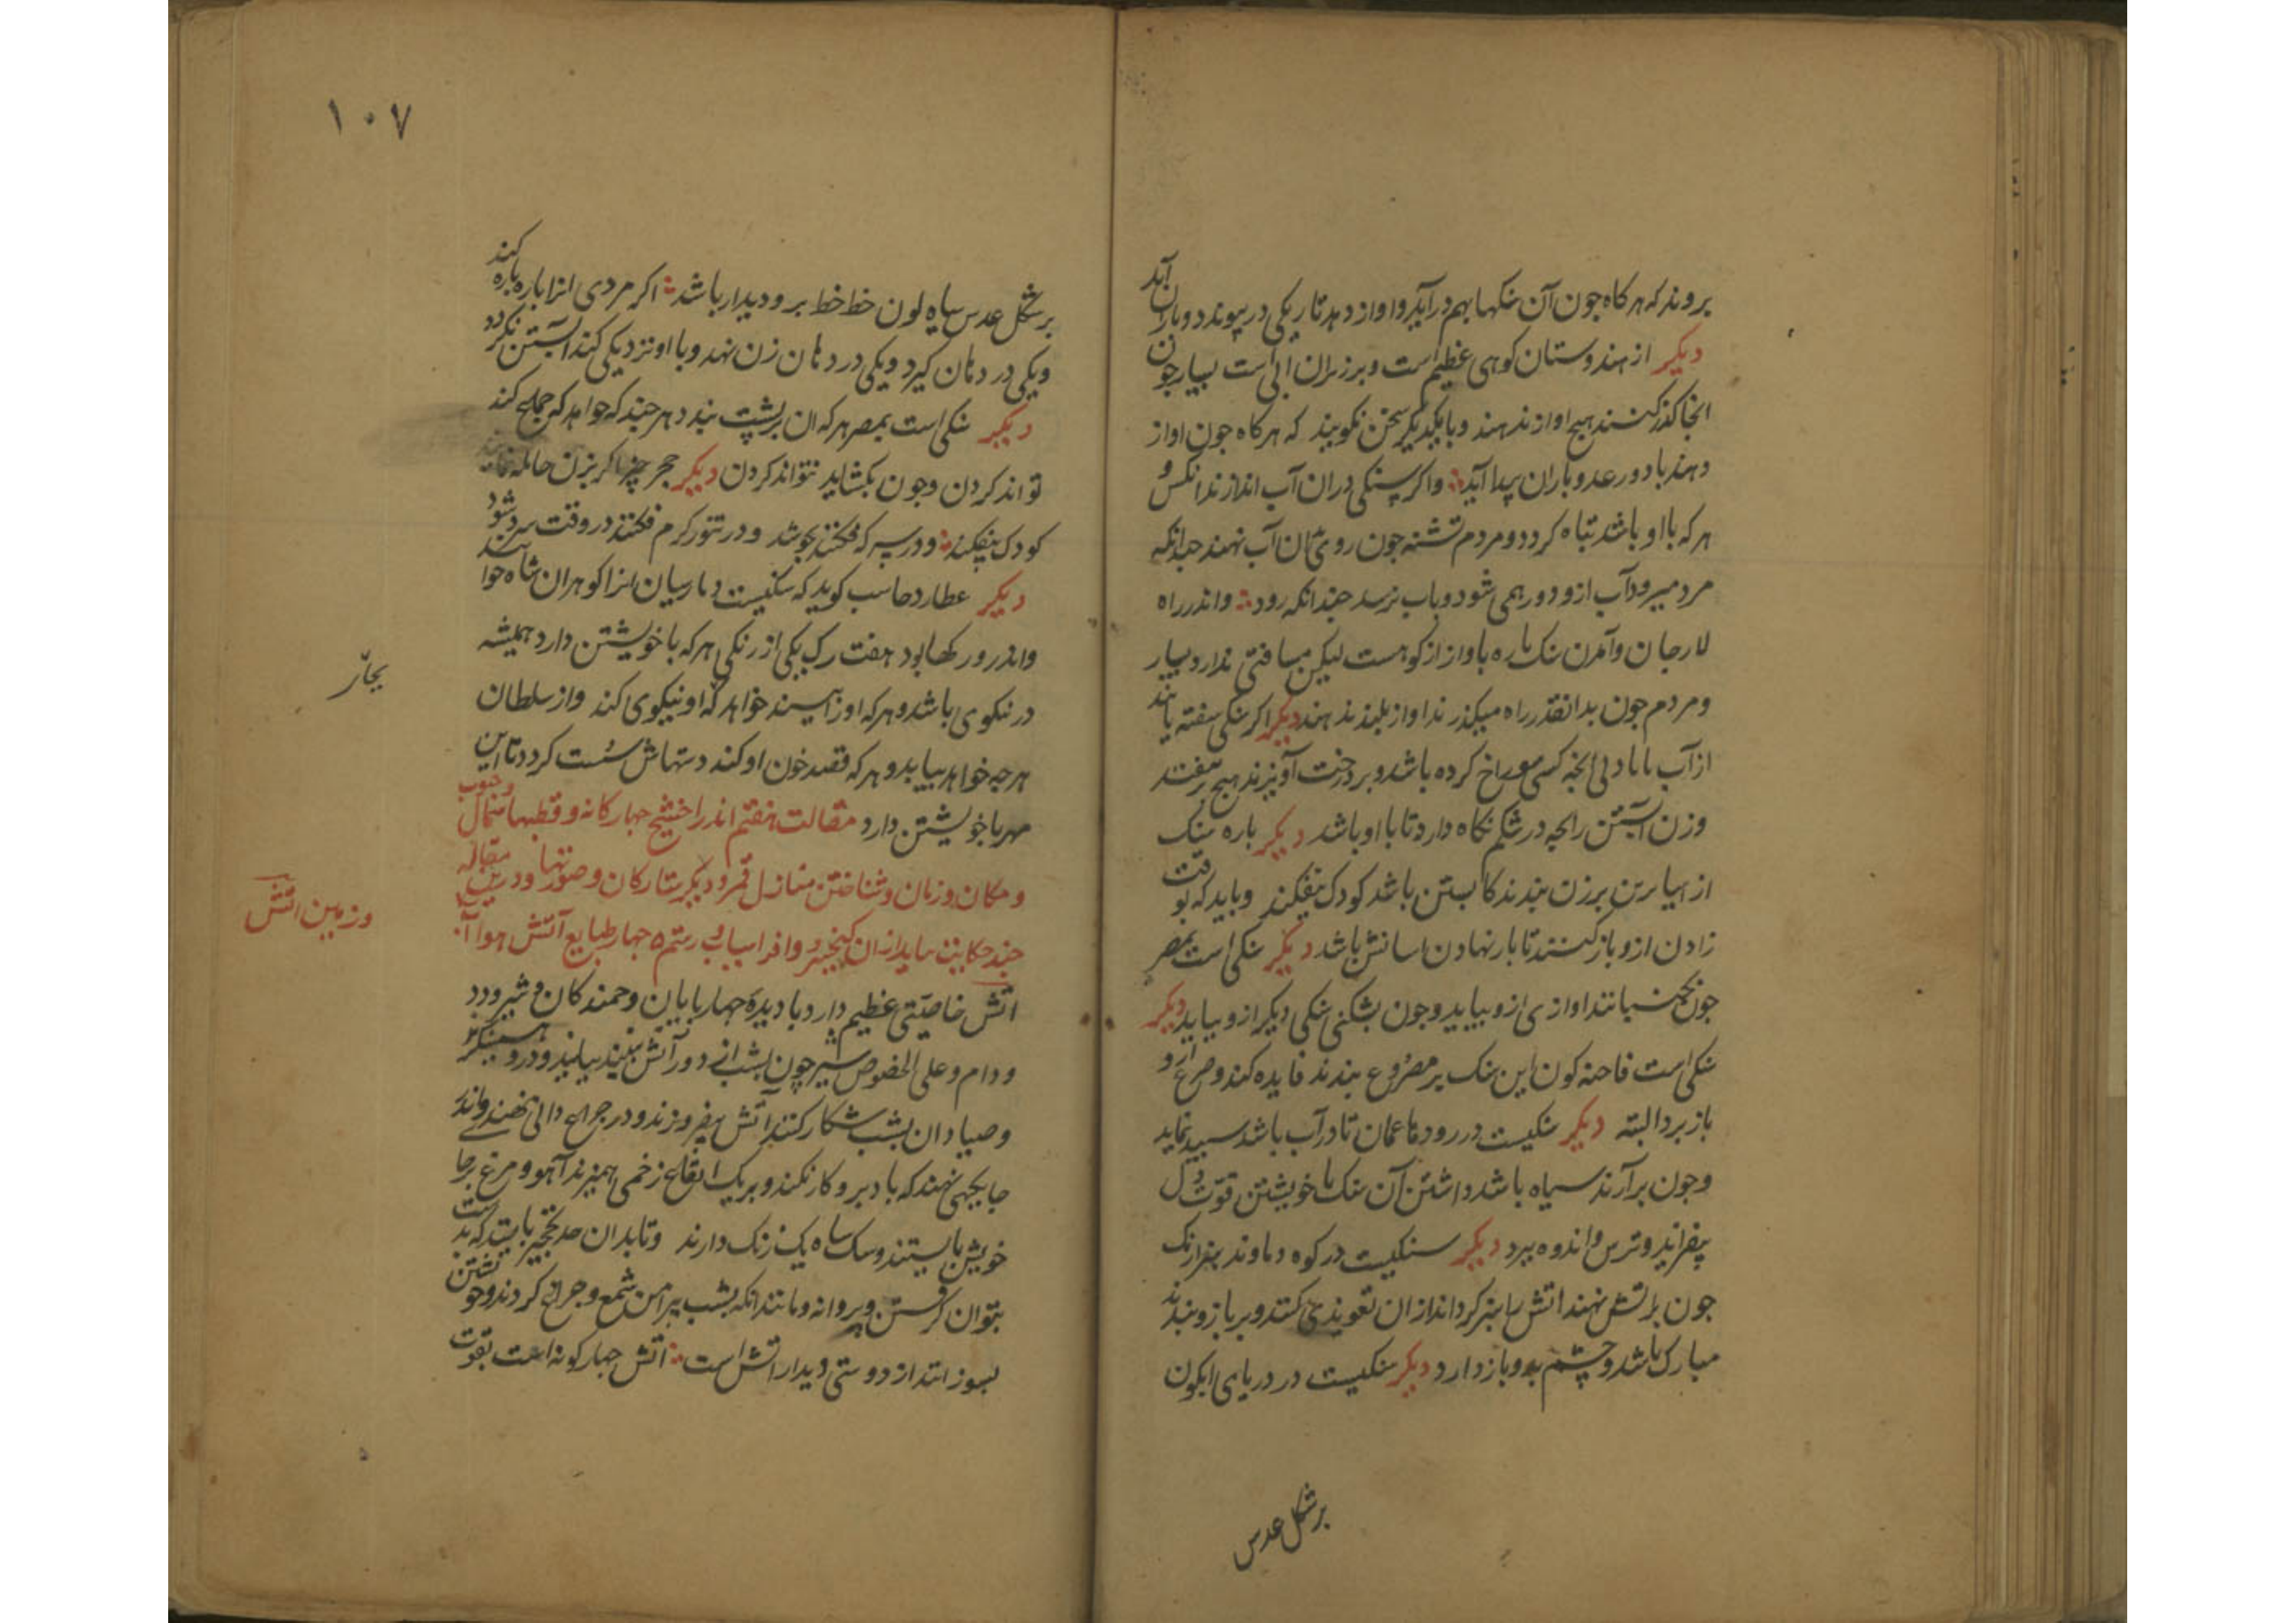 بروند که هرگاه جون آن سنکها بهم درآید و اواز دهد تاریکی در پیوندد و باران آید
دیکر از هندوستان کوهی عظیم است و بر زبر ان ابی است بسیار جون
انجا کذر کنند هیج اواز ندهند و با یکدیکر سخن نکویند که هرکاه جون اواز
دهند باد و رعد و باران پیدا آید ∴ واکر سنکی دران آب اندازند انکس و
هرکه با او باشد تباه کردد و مردم تشنه جون روی بان آب نهند جندانکه
مرد میرود آب ازو دور همی شود و باب نرسد جندانکه رود ∴ واندر راه
لارجان و آمدن سنک باره باواز از کوهست لیکن مسافتی ندارد بسیار
و مردم جون بدانقدر راه میکذرند اواز بلند ندهند دیکر اکر سنکی سفته یابند
از آب یا بادلی انجه کسی سوراخ کرده باشد و بر درخت آویزند هیج بر نیفتد
وزن آبستن را بجه در شکم نکاه دارد تا با او باشد دیکر باره سنک
از برزن بندند کابستن باشد کودک نیفکند و باید که بوقت
زادن ازو باز کنند تا بار نهادن اسانش باشد دیکر سنکی است بمصر
جون بجنبانند اوازی ازو بیاید وجون بشکنی سنکی دیکر ازو بیاید دیکر
سنکی است فاخته کون این سنک بر مصروع بندند فایده کند و صرع ازو
باز برد البته دیکر سنکیست در رودهاء عمان تا در آب باشد سبید نماید
وجون برآرند سیاه باشد داشتن آن سنک با خویشتن قوّت دل
بیفزاید و ترس و اندوه ببرد دیکر سنکیست در کوه دماوند بنفزارنک
جون براتش نهند اتش را سبز کرداند از ان تعویذی کنند و بر بازو بندند
مبارک باشد و چشم بد و بازدارد دیکر سنکیست در دریای ابکون
برشکل عدس
۱۰۷
برشکل عدس سیاه لون خط خط برو دیدار باشد ∴ اکر مردی انرا باره باره کند
ویکی در دهان کیرد و یکی در دهان زن نهد و با او نزدیکی کند آبستن نکردد
دیکر سنکی است بمصر هرکه ان بر پشت بندد هرجند که خواهد که جماع کند
تواند کردن وجون بکشاید نتواند کردن دیکر حجر اکر بزن حامله
کودک بیفکند ∴ ودر سرکه فکنند بجوشد ودر تنور کرم فکنند در وقت سرد شود
دیکر عطارد حاسب کوید که سنکیست بارسیان انرا کوهران شاه خوانند
واندرو رکها بود هفت رک یکی از رنکی هرکه با خویشتن دارد همیشه
در نیکوی باشد و هرکه اورا بیند خواهد که او نیکوی کند واز سلطان
هرجه خواهد بیابد و هرکه قصد خون او کند دستهاش سُست کردد تا این
مهر با خویشتن دارد مقالت هفتم اندر اخشیج جهار کانه و قطبها شمال و جنوب
و مکان و زمان و شناختن منازل قمر و دیکر ستارکان و صورتها و درین مقاله
جند حکایت بیاید از ان کیخسرو و افراسیاب و رستم ه جهار طبایع آتش هوا آب
و زمین اتش
اتش خاصیّتی عظیم دارد با دیدهٔ جهاربایان و جمندکان و شیر و دد
و دام و علی الخصوص شیر چون بشب از دور آتش بیند بیاید و درو مینکرد
و صیادان بشب شکار کنند آتش بیفروزند و در
جایکهی نهند که باد برو کار نکند و بر یک ایقاع زخمی همیزند آهو و مرغ برجا
خویش بایستند و سک سیاه یک زنک دارند وتا بدان حد متحیر بایستد که بدست
بتوان کرفتن و پروانه و مانند انکه بشب پیرامن شمع و جراغ کردند و خویشتن
بسوزانند از دوستی دیدار اتش است ∴ اتش جهار کونه است بقوت